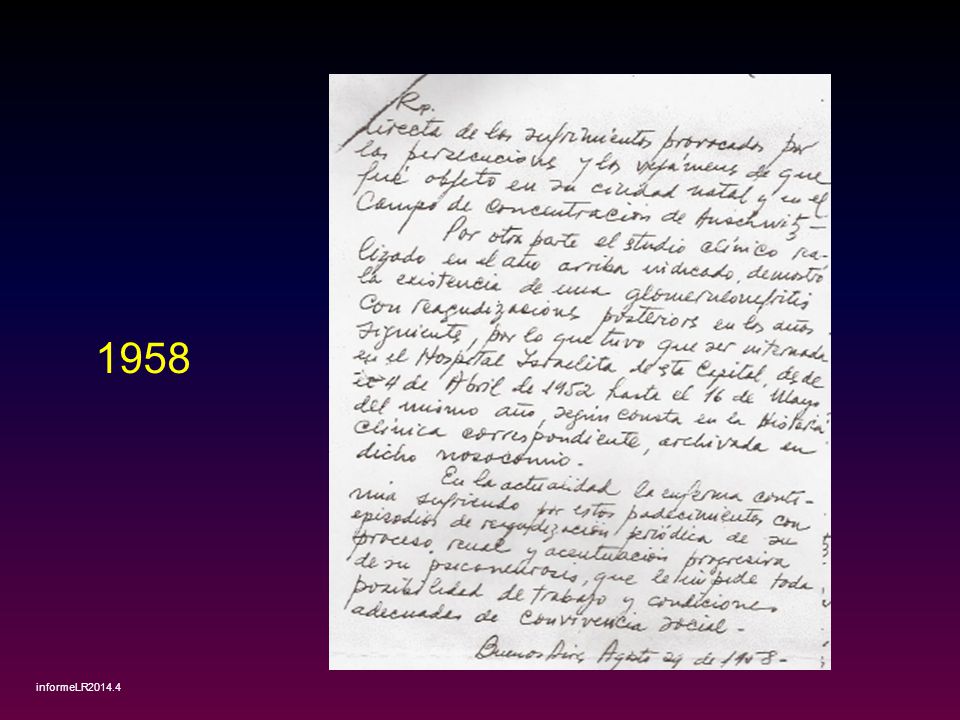 1958
Rp.
directa de los sufrimientos provocados por
las persecucions y los vejámens de que
fué objeto en su ciudad natal y en el
Campo de concentración de Auschwitz—
Por otra parte el studio clínico rea-
lizado en el año arriba indicado, demostró
la existencia de una glomerulonefritis
con reagudizacions posteriors en los años
siguiente, por lo que tuvo que ser internada
en el Hospital Israelita de sta Capital, desde
el 4 de Abril de 1952 hasta el 16 de Mayo
del mismo año, según consta en la Historia
clínica correspondiente, archivada en
dicho nosocomio.
En la actualidad la enferma conti-
núa sufriendo por estos padecimientos con
episodios de reagudización periódica de su
proceso renal y acentuación progresiva
de su psiconeurosis, que le impide toda
posibilidad de trabajo y condiciones
adecuadas de convivencia social-
Buenos Aires Agosto 29 de 1958-
informeLR2014.4